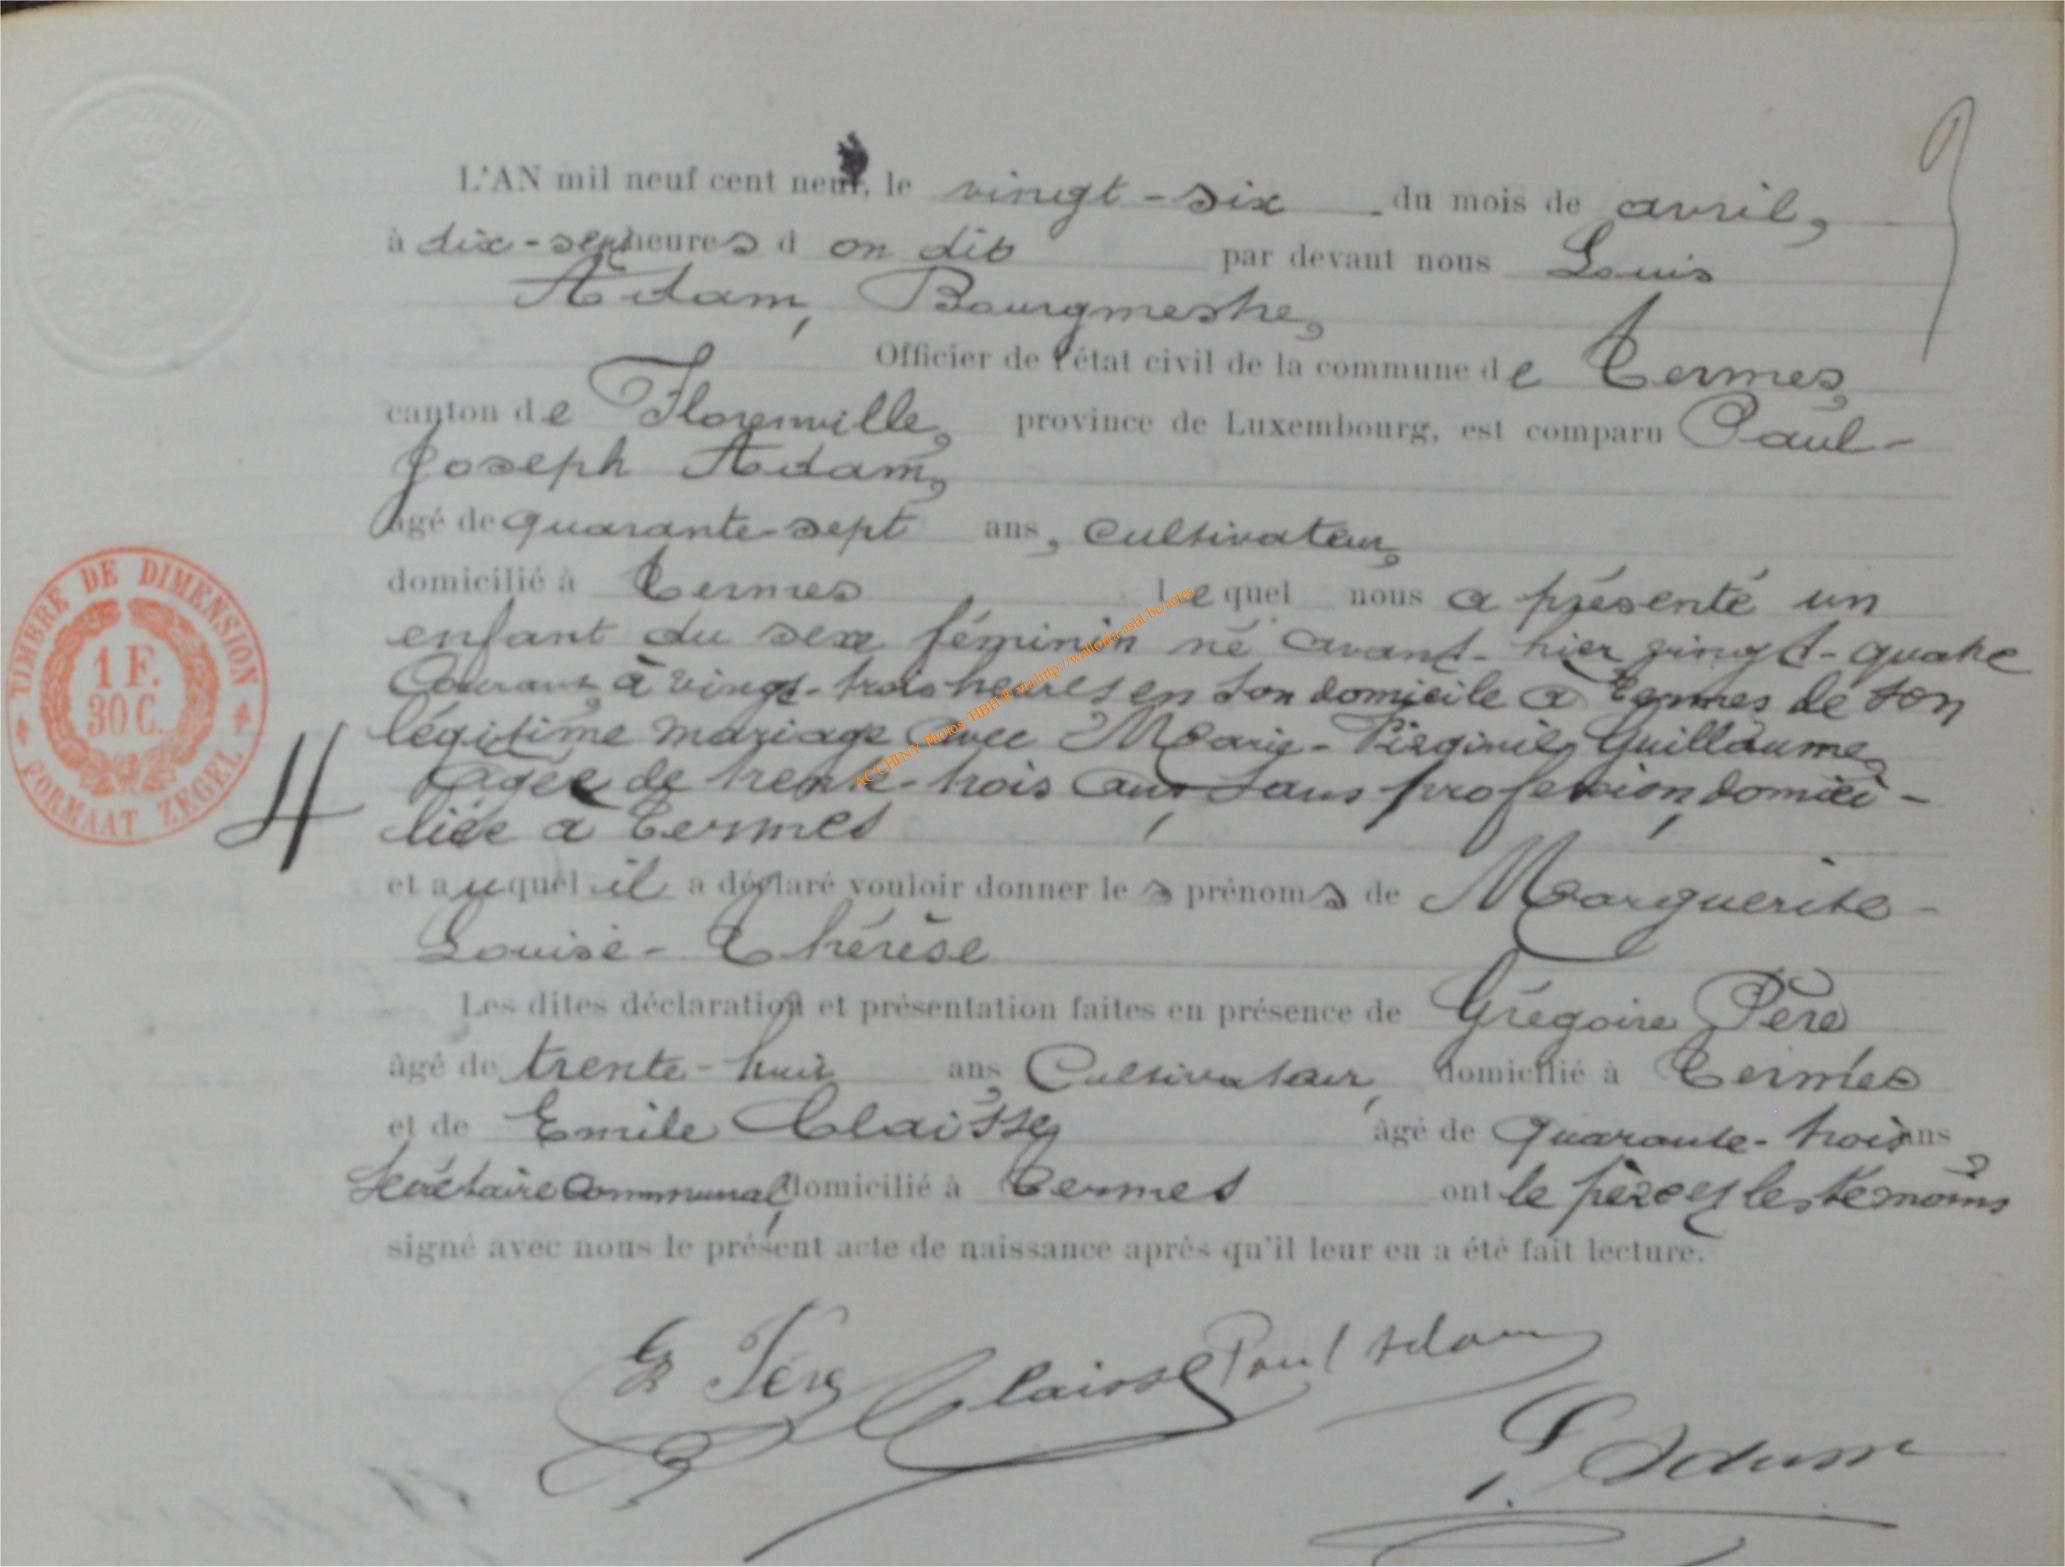 L'AN mil neuf cent neuf, le vingt-six du mois de avril,
à dix-sept heures d on dit par devant nous Louis
Adam, Bourgmestre,
Officier de l'état civil de la commune de Termes,
canton de Florenville, province de Luxembourg, est comparu Paul-
Joseph Adam,
âgé de quarante-sept ans, cultivateur,
domicilié à Termes lequel nous a présenté un
enfant du sexe féminin né avant-hier vingt-quatre
Courant, à vingt-trois heures en son domicile à Termes de son
légitime mariage avec Marie-Virginie Guillaume,
âgée de trente-trois ans, sans profession, domici-
liée à Termes
et auquel il a déclaré vouloir donner les prénoms de Marguerite-
Louise-Thérèse
Les dites déclaration et présentation faites en présence de Grégoire Père
âgé de trente-huit ans, Cultivateur, domicilié à Termes
et de Emile Claisse âgé de quarante-trois ans,
Secrétaire Communal, domicilié à Termes ont le père et les témoins
signé avec nous le présent acte de naissance après qu'il leur en a été fait lecture.
G Père Claisse Paul Adam
L Adam
TIMBRE DE DIMENSION
1 F.
30 C.
FORMAAT ZEGEL
4
AC CHINY Photos HBH © via http://wallonia-asbl.be/actes